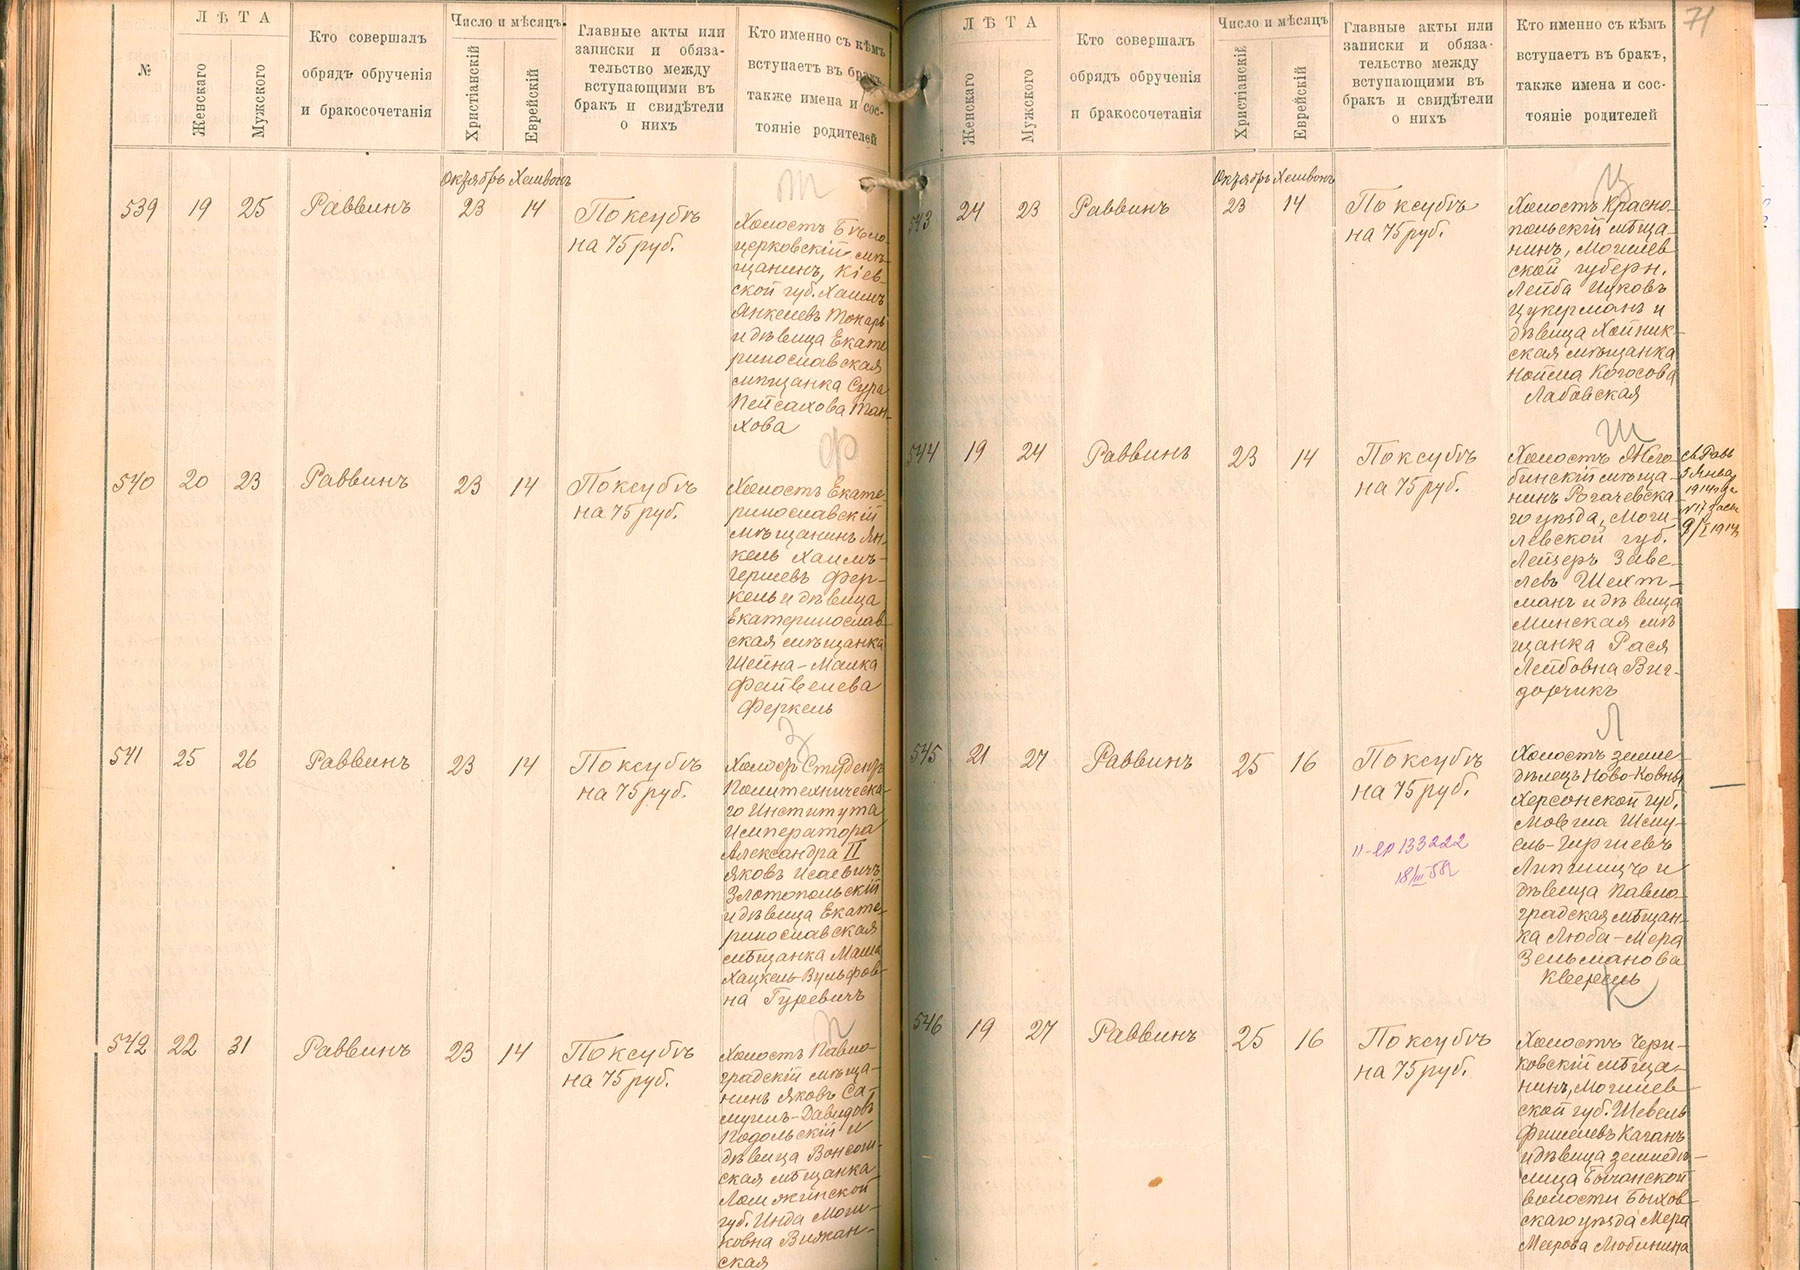 №
ЛѢТА
Женскаго
Мужского
Кто совершалъ
обрядъ обрученія
и бракосочетанія
Число и мѣсяцъ.
Христіанскій
Еврейскій
Главные акты или
записки и обяза-
тельство между
вступающими въ
бракъ и свидѣтели
о нихъ
Кто именно съ кѣмъ
вступаетъ въ бракъ,
также имена и сос-
тояніе родителей
Октябрь Хешвонъ
539 19 25 Раввинъ 23 14 По ксубѣ
на 75 руб.
Т
Холостъ Бѣло-
церковскій мѣ-
щанинъ, Кіев-
ской губ. Хаимъ
Янкелевъ Токарь
и дѣвица Екате
ринославская
мѣщанка Сура
Пейсахова Тан-
хова
540 20 23 Раввинъ 23 14 По ксубѣ
на 75 руб.
Ф
Холостъ Екате-
ринославскій
мѣщанинъ Ян-
кель Хаимъ-
Гершевъ Фер-
кель и дѣвица
Екатеринослав-
ская мѣщанка
Шейна-Малка
Файвелева
Феркель
541 25 26 Раввинъ 23 14 По ксубѣ
на 75 руб.
З
Холостъ Студентъ
Политехническа-
го Института
Императора
Александра II
Яковъ Исаевичъ
Златопольскій
и дѣвица Екате-
ринославская
мѣщанка Маша
Хацкель-Вульфов-
на Гуревичъ
542 22 31 Раввинъ 23 14 По ксубѣ
на 75 руб.
П
Холостъ Павло-
градскій мѣща-
нинъ Яковъ Са-
муилъ-Давидовъ
Подольскій и
дѣвица
ская мѣщанка
Ломжинской
губ. Инда Мош-
ковна
ская
71
ЛѢТА
Женскаго
Мужского
Кто совершалъ
обрядъ обрученія
и бракосочетанія
Число и мѣсяцъ
Христіанскій
Еврейскій
Главные акты или
записки и обяза-
тельство между
вступающими въ
бракъ и свидѣтели
о нихъ
Кто именно съ кѣмъ
вступаетъ въ бракъ,
также имена и сос-
тояніе родителей
Октябрь Хешвонъ
543 24 23 Раввинъ 23 14 По ксубѣ
на 75 руб.
Ц
Холостъ Красно-
польскій мѣща-
нинъ, Могилев
ской губерн.
Лейба Ицковъ
Цукерманъ и
дѣвица Хойник-
ская мѣщанка
Нойма Когосова
Лабовская
544 19 24 Раввинъ 23 14 По ксубѣ
на 75 руб.
Ш
Холостъ Жло-
бинскій мѣща-
нинъ Рогачевска-
го уѣзда, Моги-
левской губ.
Лейзеръ Заве-
левъ Шехт-
манъ и дѣвица
Минская мѣ
щанка Рася
Лейбовна Виг-
дорчикъ
545 21 27 Раввинъ 25 16 По ксубѣ
на 75 руб.
133222
Л
Холостъ земле
дѣлецъ Ново-Ковны
Херсонской губ.
Мовша Шму-
ель-Гиршевъ
Липшицъ и
дѣвица Павло-
градская мѣщан-
ка Люба-Мера
Зельманова
546 19 27 Раввинъ 25 16 По ксубѣ
на 75 руб.
К
Холостъ Чери-
ковскій мѣща-
нинъ, Могилев-
ской губ. Шевель
Фишелевъ Каганъ
и дѣвица земледѣ-
лица
волости Быхов-
скаго уѣзда Мера
Меерова Любинина